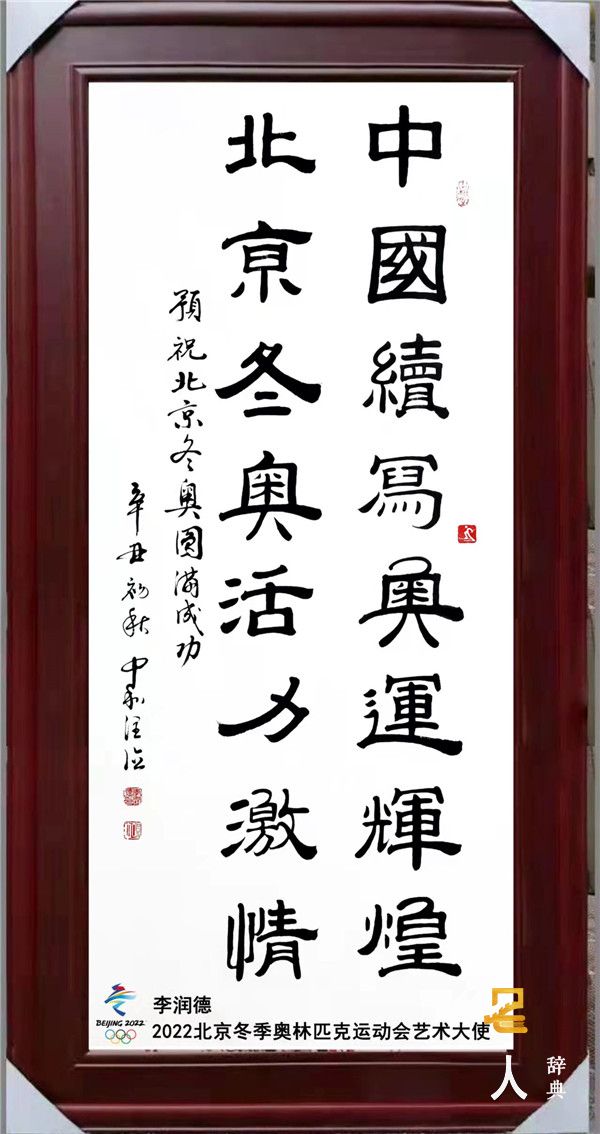 中國續寫奧運輝煌
北京冬奧活力激情
預祝北京冬奧圓滿成功
辛丑初秋
BEIJING 2022
李润德
2022北京冬季奥林匹克运动会艺术大使
名人
辞典